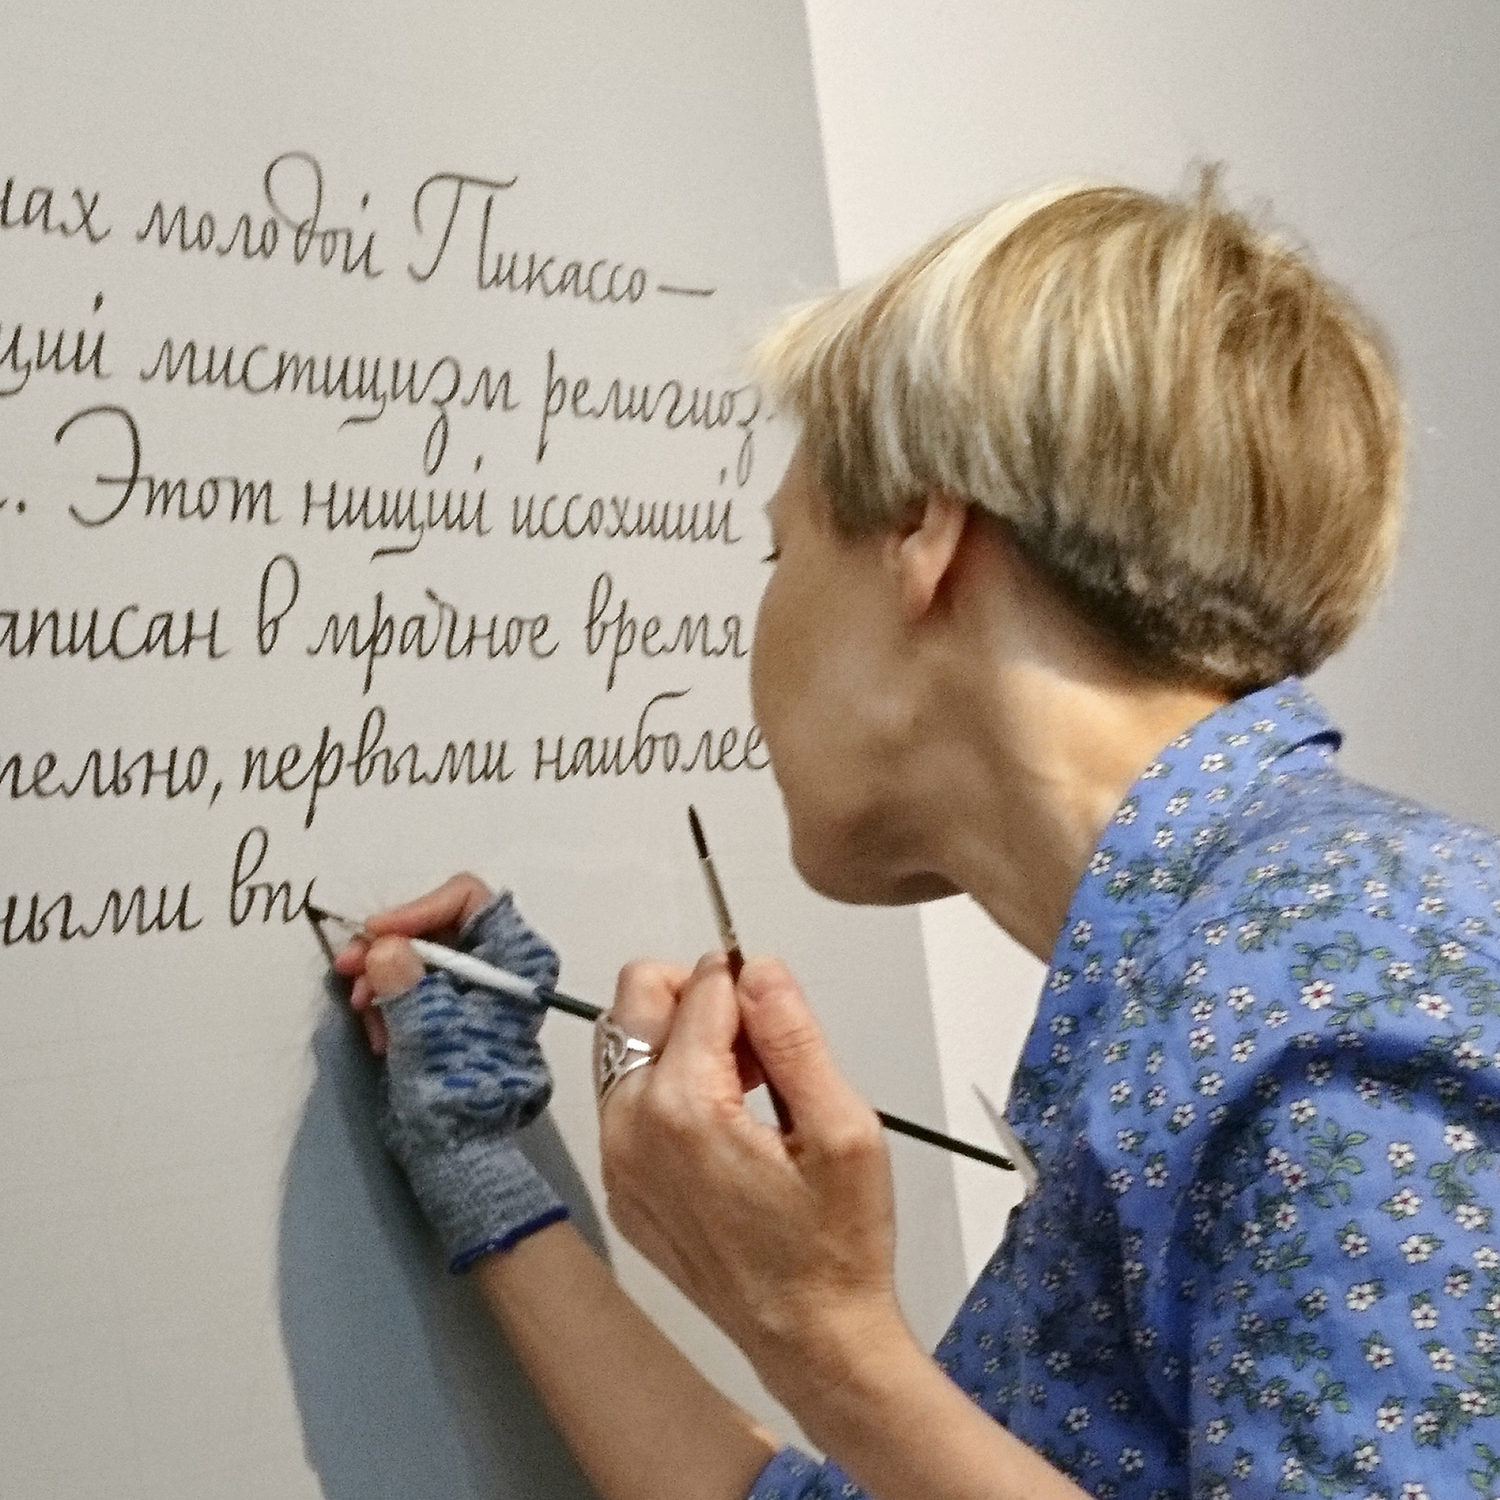 нах молодой Пикассо —
щий мистицизм религиоз-
. Этот нищий иссохший
аписан в мрачное время
тельно, первыми наиболее
ными вп